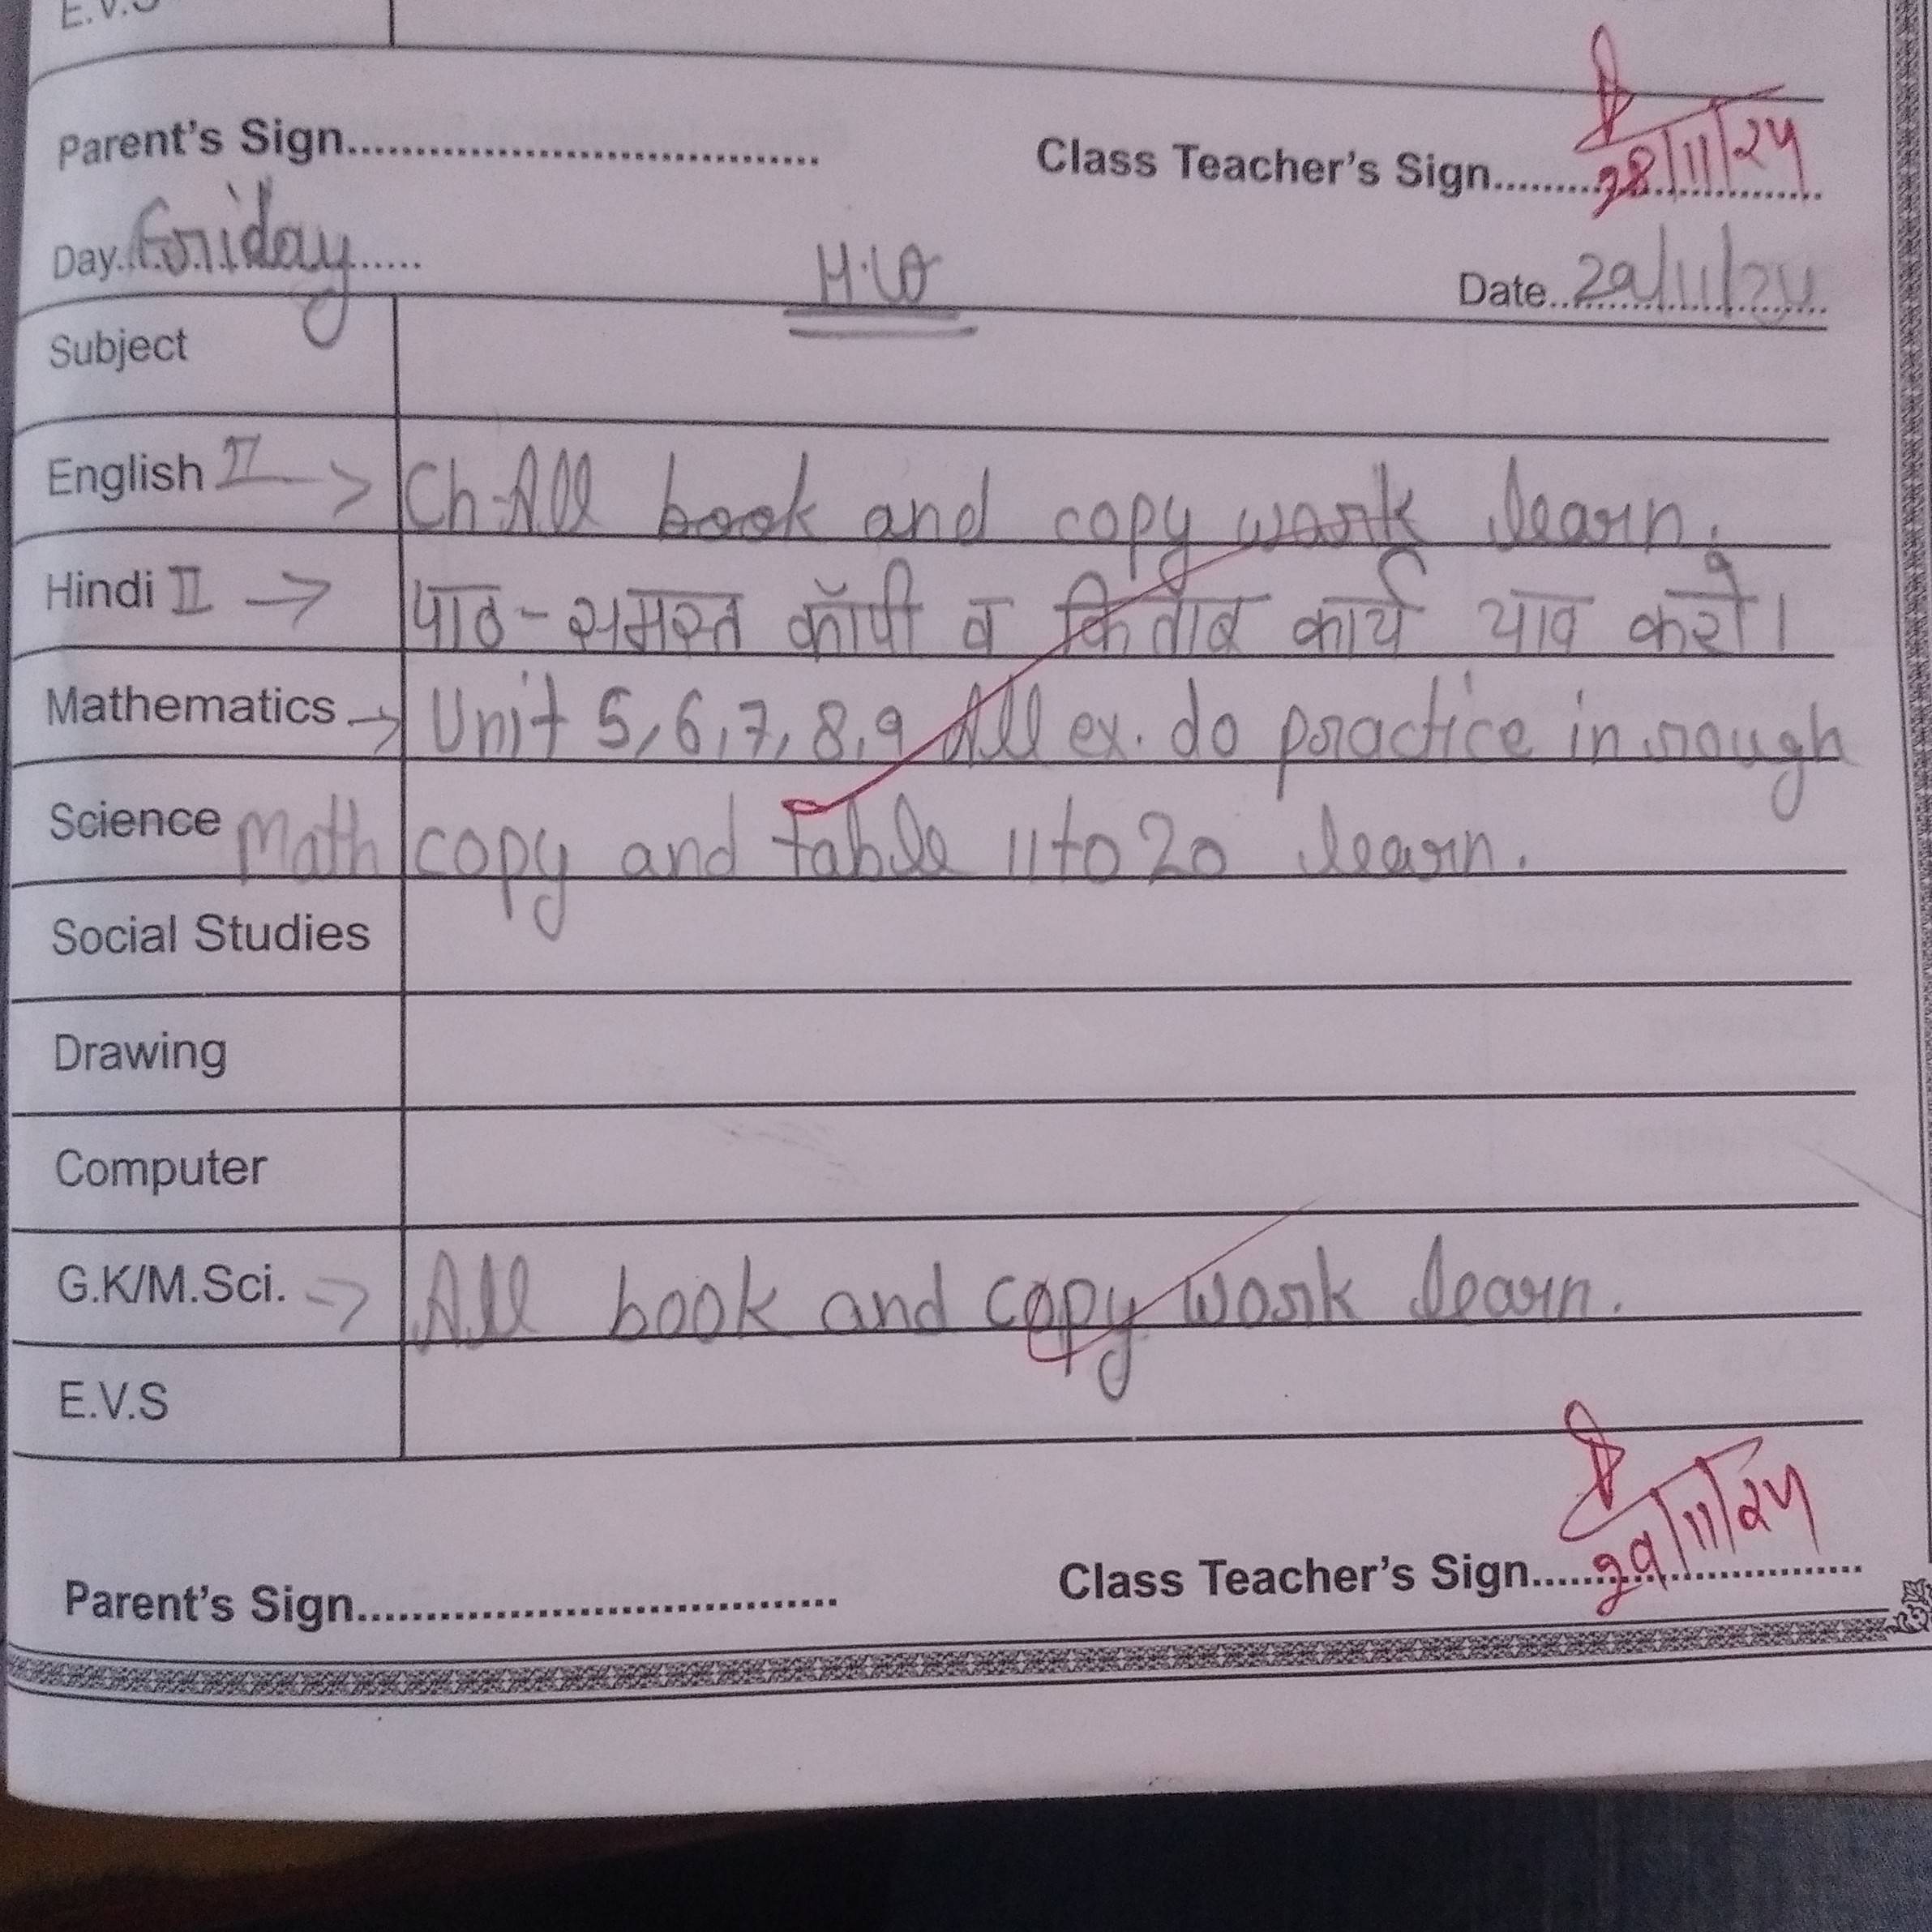 E.V.S
Parent's Sign.................................... Class Teacher's Sign.........28/11/24
Day..Friday...... H.W Date..29/11/24
Subject
English II -> Ch-All book and copy work learn.
Hindi II -> पाठ-समस्त कॉपी व किताब कार्य याद करो।
Mathematics -> Unit 5,6,7,8,9 All ex. do practice in rough
Science Math copy and table 11 to 20 learn.
Social Studies
Drawing
Computer
G.K/M.Sci. -> All book and copy work learn.
E.V.S
Parent's Sign.................................... Class Teacher's Sign.........29/11/24